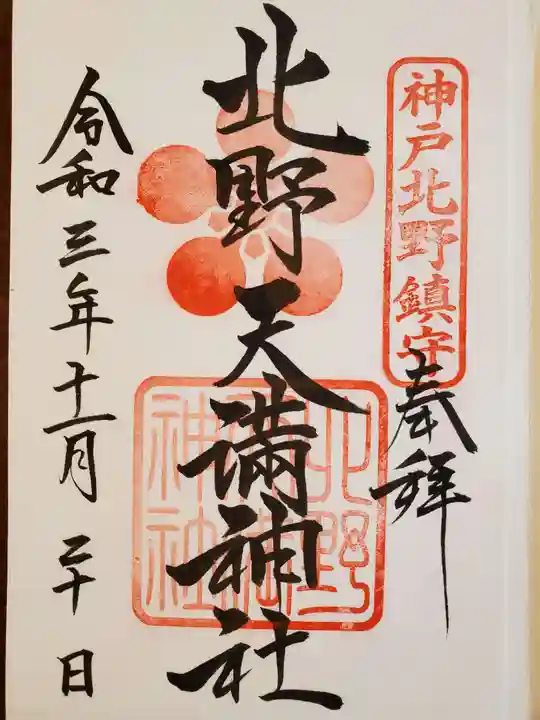 神戸北野鎮守
奉拝
北野天満神社
北野天満神社
令和三年十一月二十日